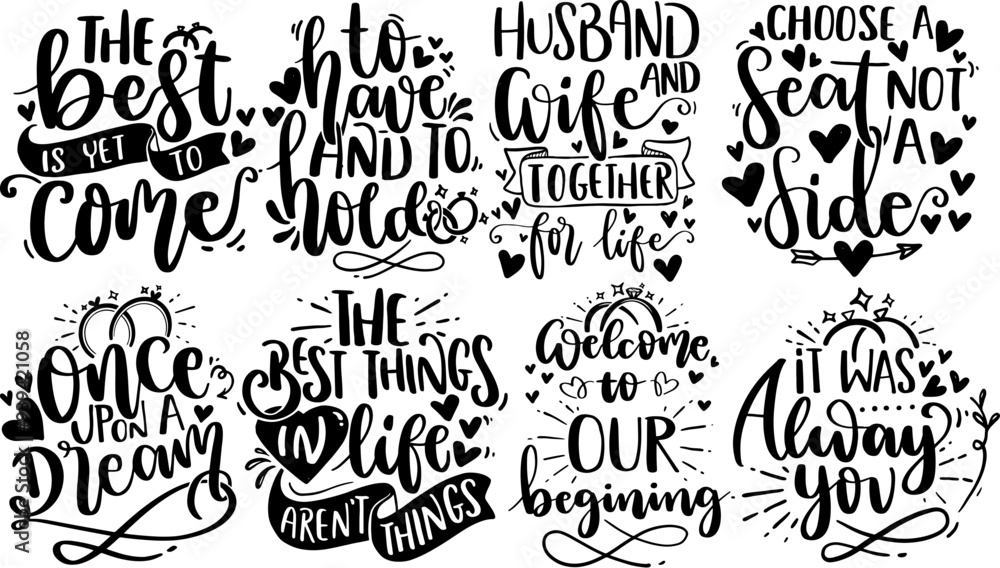 THE
best
IS YET TO
Come
to
have
AND TO
hold
HUSBAND
AND
Wife
TOGETHER
for life
CHOOSE A
Seat NOT
A
Side
Once
UPON A
Dream
THE
BEST THINGS
IN life
AREN'T THINGS
Welcome
to
OUR
begining
iT WAS
Alway
you
Adobe Stock